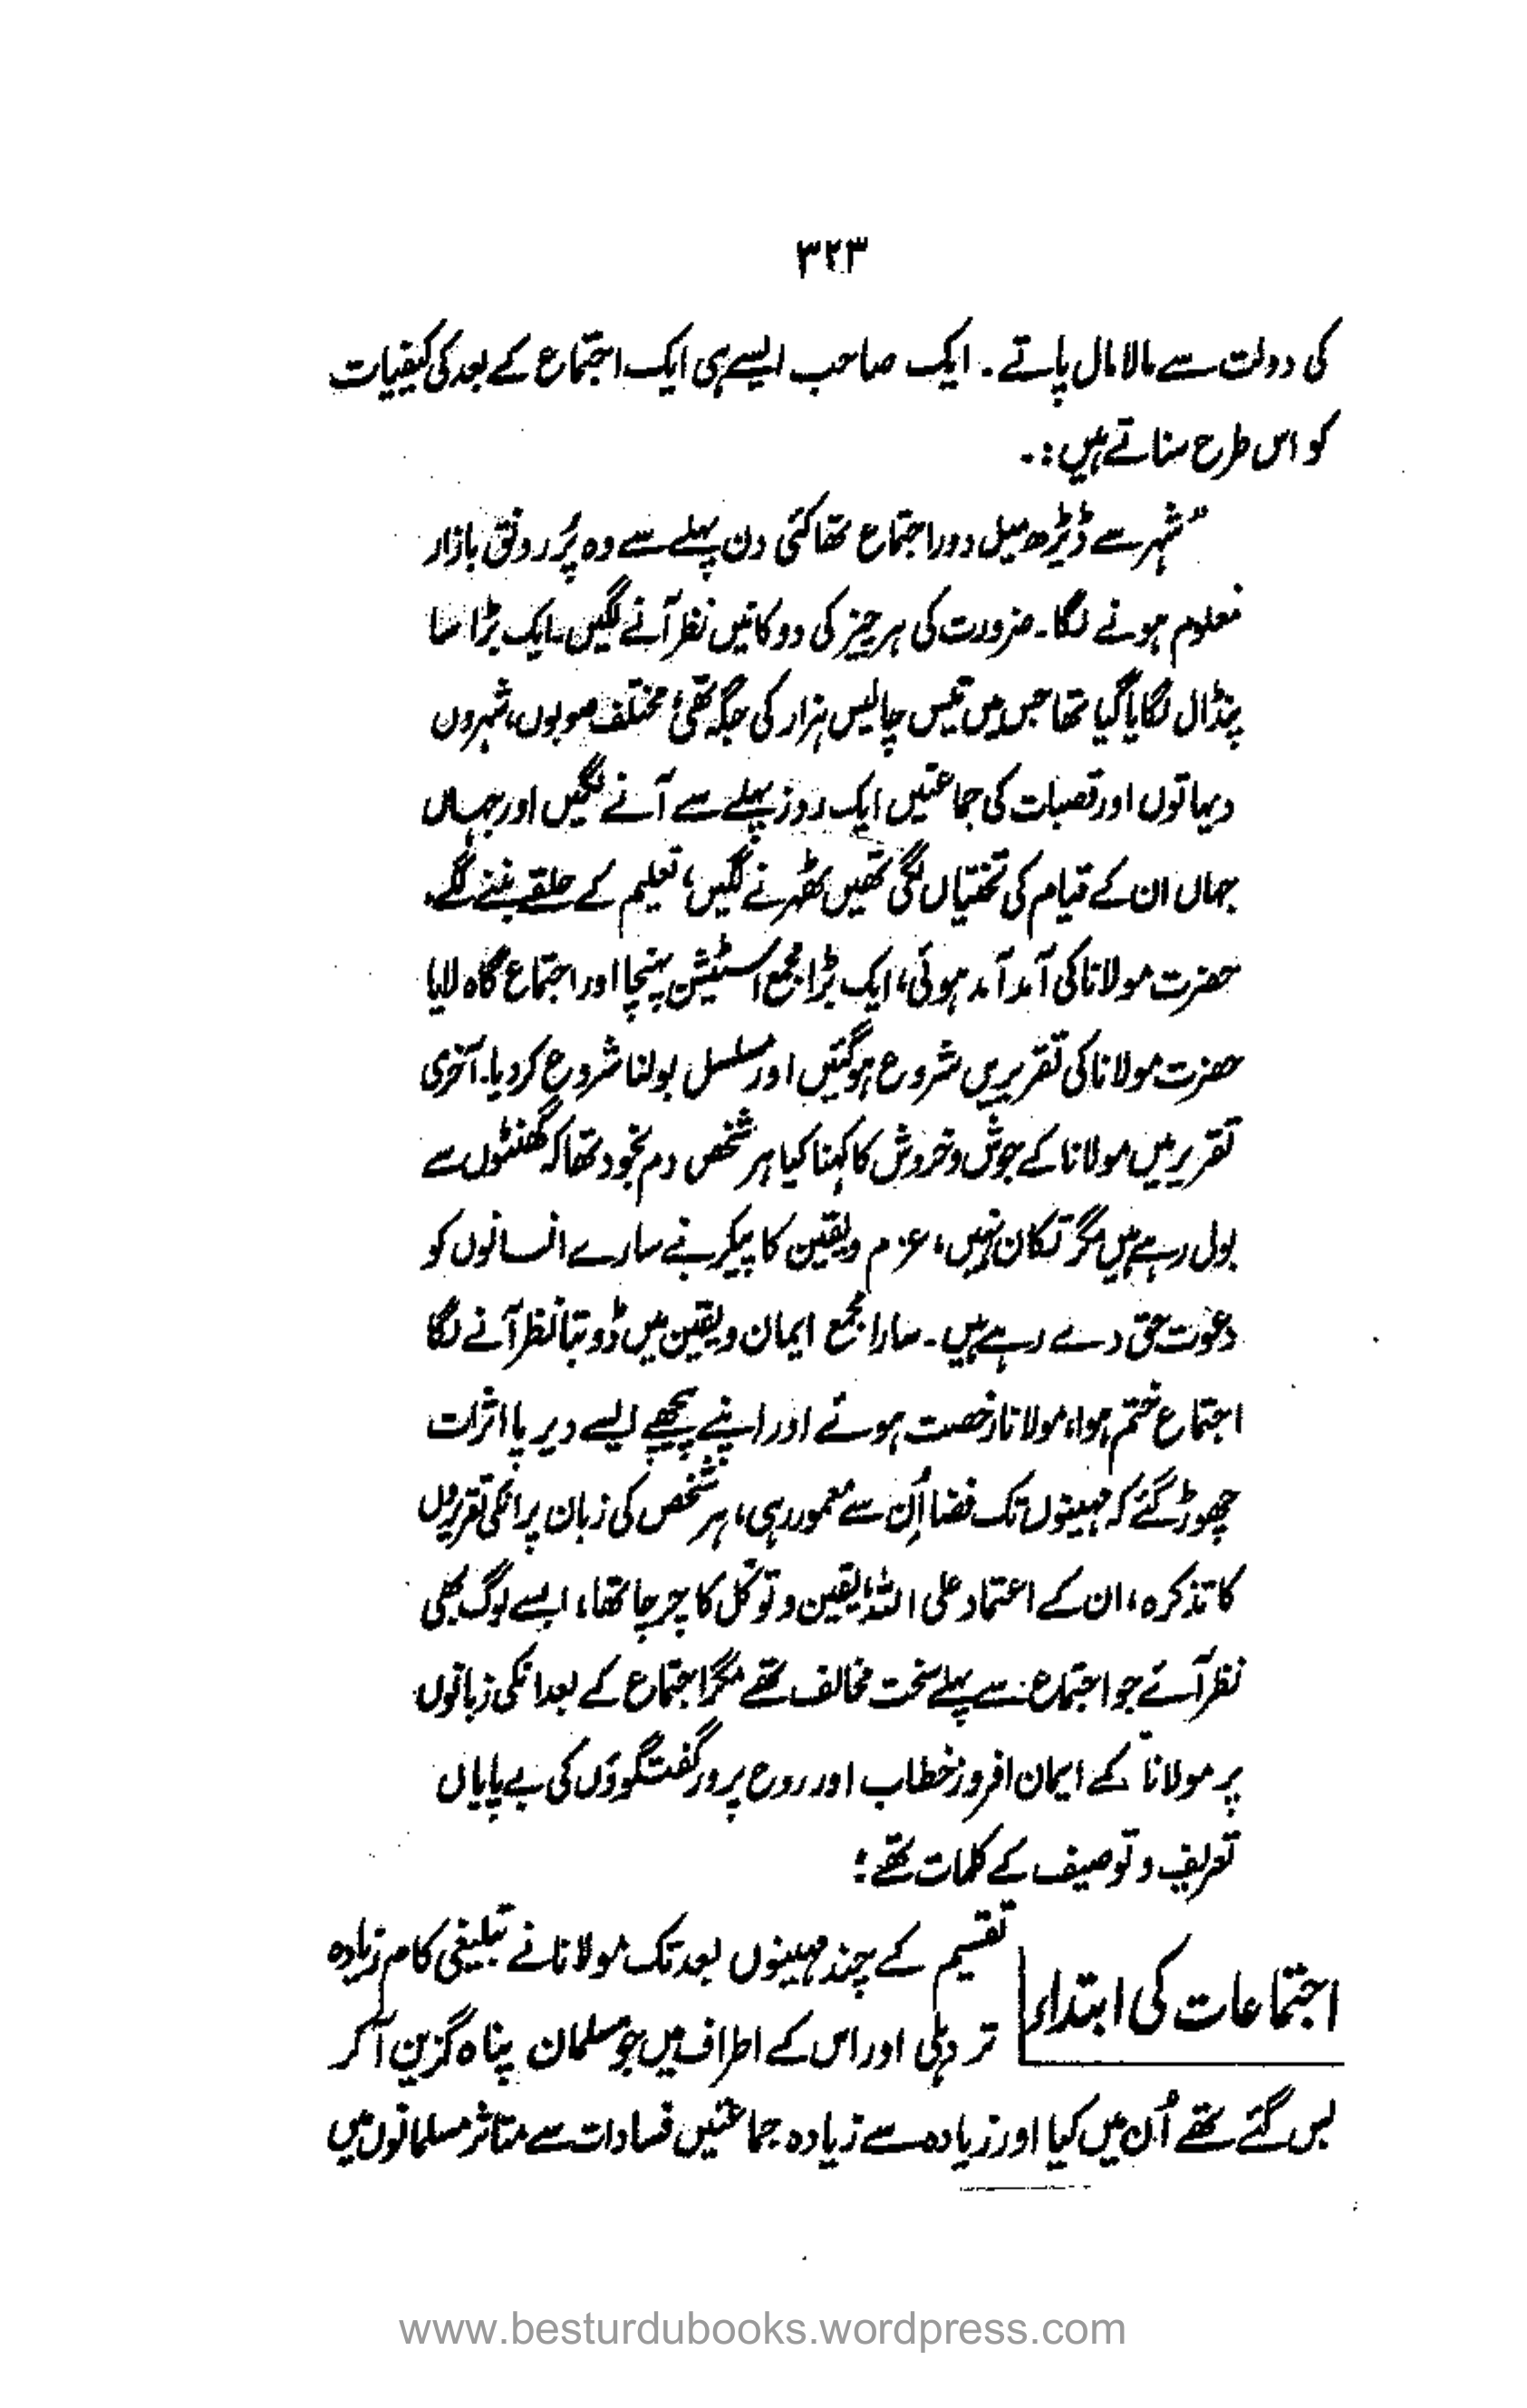 ۳۲۳
کی دولت سے مالا مال پاتے ۔ ایک صاحب ایسے ہی ایک اجتماع کے بعد کی کیفیات
کو اس طرح سناتے ہیں :۔
"شہر سے ڈیڑھ میل دور اجتماع تھا کئی دن پہلے سے وہ پُر رونق بازار
معلوم ہونے لگا۔ ضرورت کی ہر چیز کی دوکانیں نظر آنے لگیں۔ ایک بڑا سا
پنڈال لگایا گیا تھا جس میں تیس چالیس ہزار کی جگہ تھی، مختلف صوبوں، شہروں
دیہاتوں اور قصبات کی جماعتیں ایک روز پہلے سے آنے لگیں اور جہاں
جہاں ان کے قیام کی تختیاں لگی تھیں ٹھہرنے لگیں، تعلیم کے حلقے بننے لگے۔
حضرت مولانا کی آمد آمد ہوئی، ایک بڑا مجمع اسٹیشن پہنچا اور اجتماع گاہ لایا
حضرت مولانا کی تقریریں شروع ہوگئیں اور مسلسل بولنا شروع کردیا۔ آخری
تقریر میں مولانا کے جوش و خروش کا کہنا کیا ہر شخص دم بخود تھا کہ گھنٹوں سے
بول رہے ہیں مگر تکان نہیں، عزم و یقین کا پیکر بنے سارے انسانوں کو
دعوت حق دے رہے ہیں۔ سارا مجمع ایمان و یقین میں ڈوبتا نظر آنے لگا
اجتماع ختم ہوا، مولانا رخصت ہوئے اور اپنے پیچھے ایسے دیرپا اثرات
چھوڑ گئے کہ مہینوں تک فضا اُن سے معمور رہی، ہر شخص کی زبان پر انکی تقریروں
کا تذکرہ، ان کے اعتماد علی اللہ، یقین و توکّل کا چرچا تھا، ایسے لوگ بھی
نظر آئے جو اجتماع سے پہلے سخت مخالف تھے مگر اجتماع کے بعد انکی زبانوں
پر مولانا کے ایمان افروز خطاب اور روح پرور گفتگوؤں کی بے پایاں
تعریف و توصیف کے کلمات تھے؛
اجتماعات کی ابتداء
تقسیم کے چند مہینوں بعد تک مولانا نے تبلیغی کام زیادہ
تر دہلی اور اس کے اطراف میں جو مسلمان پناہ گزین آکر
بس گئے تھے اُن میں کیا اور زیادہ سے زیادہ جماعتیں فسادات سے متاثر مسلمانوں میں
www.besturdubooks.wordpress.com